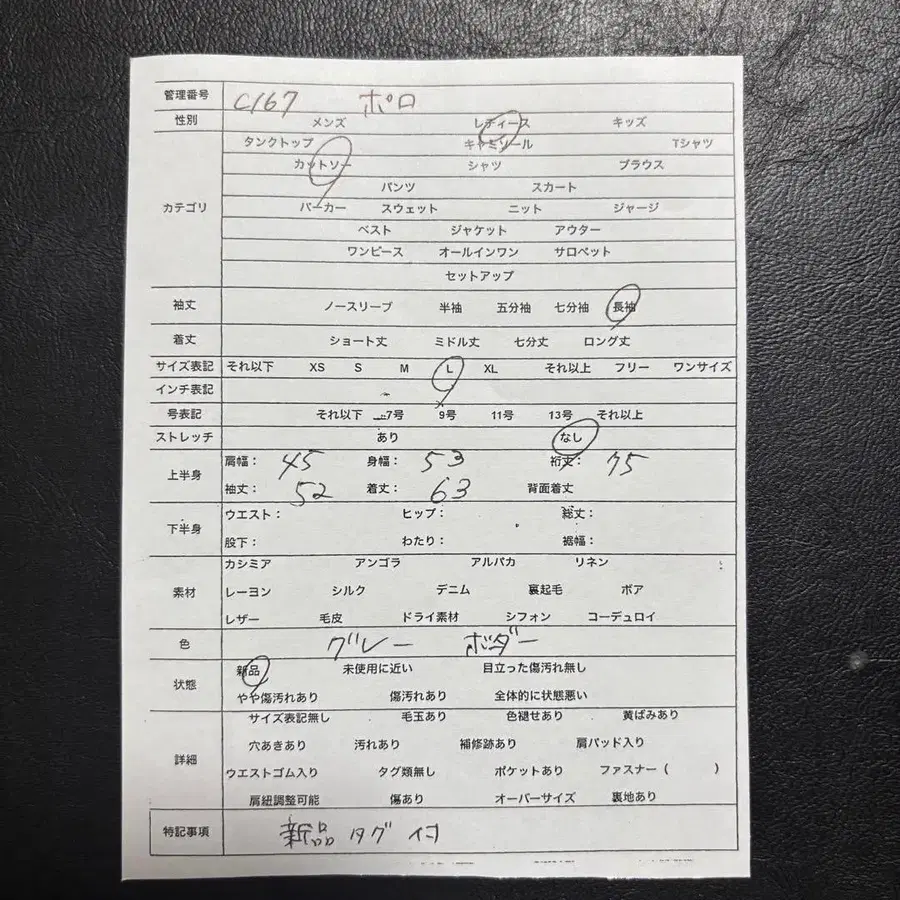 管理番号 C167 ポロ
性別 メンズ レディース キッズ
タンクトップ キャミソール Tシャツ
カットソー シャツ ブラウス
パンツ スカート
カテゴリ パーカー スウェット ニット ジャージ
ベスト ジャケット アウター
ワンピース オールインワン サロペット
セットアップ
袖丈 ノースリーブ 半袖 五分袖 七分袖 長袖
着丈 ショート丈 ミドル丈 七分丈 ロング丈
サイズ表記 それ以下 XS S M L XL それ以上 フリー ワンサイズ
インチ表記
号表記 それ以下 7号 9号 11号 13号 それ以上
ストレッチ あり なし
上半身 肩幅： 45 身幅： 53 裄丈： 75
袖丈： 52 着丈： 63 背面着丈
下半身 ウエスト： ヒップ： 総丈：
股下： わたり： 裾幅：
カシミア アンゴラ アルパカ リネン
素材 レーヨン シルク デニム 裏起毛 ボア
レザー 毛皮 ドライ素材 シフォン コーデュロイ
色 グレー ボーダー
状態 新品 未使用に近い 目立った傷汚れ無し
やや傷汚れあり 傷汚れあり 全体的に状態悪い
サイズ表記無し 毛玉あり 色褪せあり 黄ばみあり
詳細 穴あきあり 汚れあり 補修跡あり 肩パッド入り
ウエストゴム入り タグ類無し ポケットあり ファスナー ( )
肩紐調整可能 傷あり オーバーサイズ 裏地あり
特記事項 新品 タグ 付